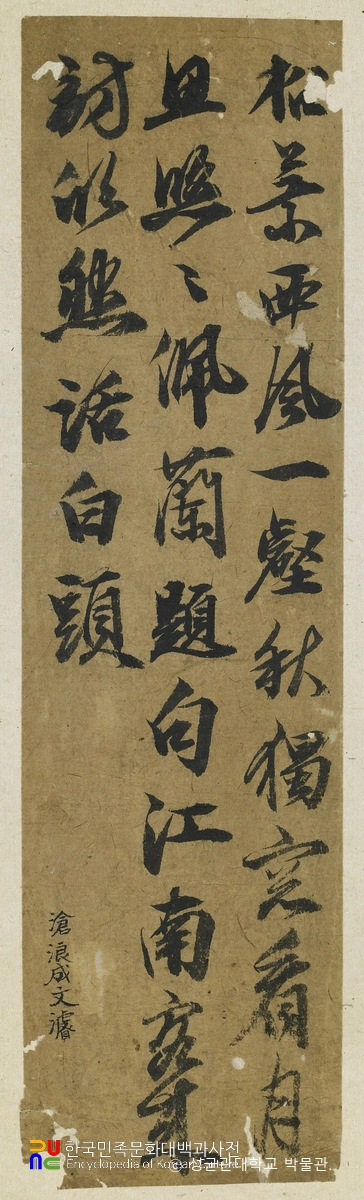 松葉西風一壑秋獨窓看月
且悠〻佩蘭題句江南客
訪欣然話白頭
滄浪成文濬
한국민족문화대백과사전
Encyclopedia of Korean
성균관대학교 박물관